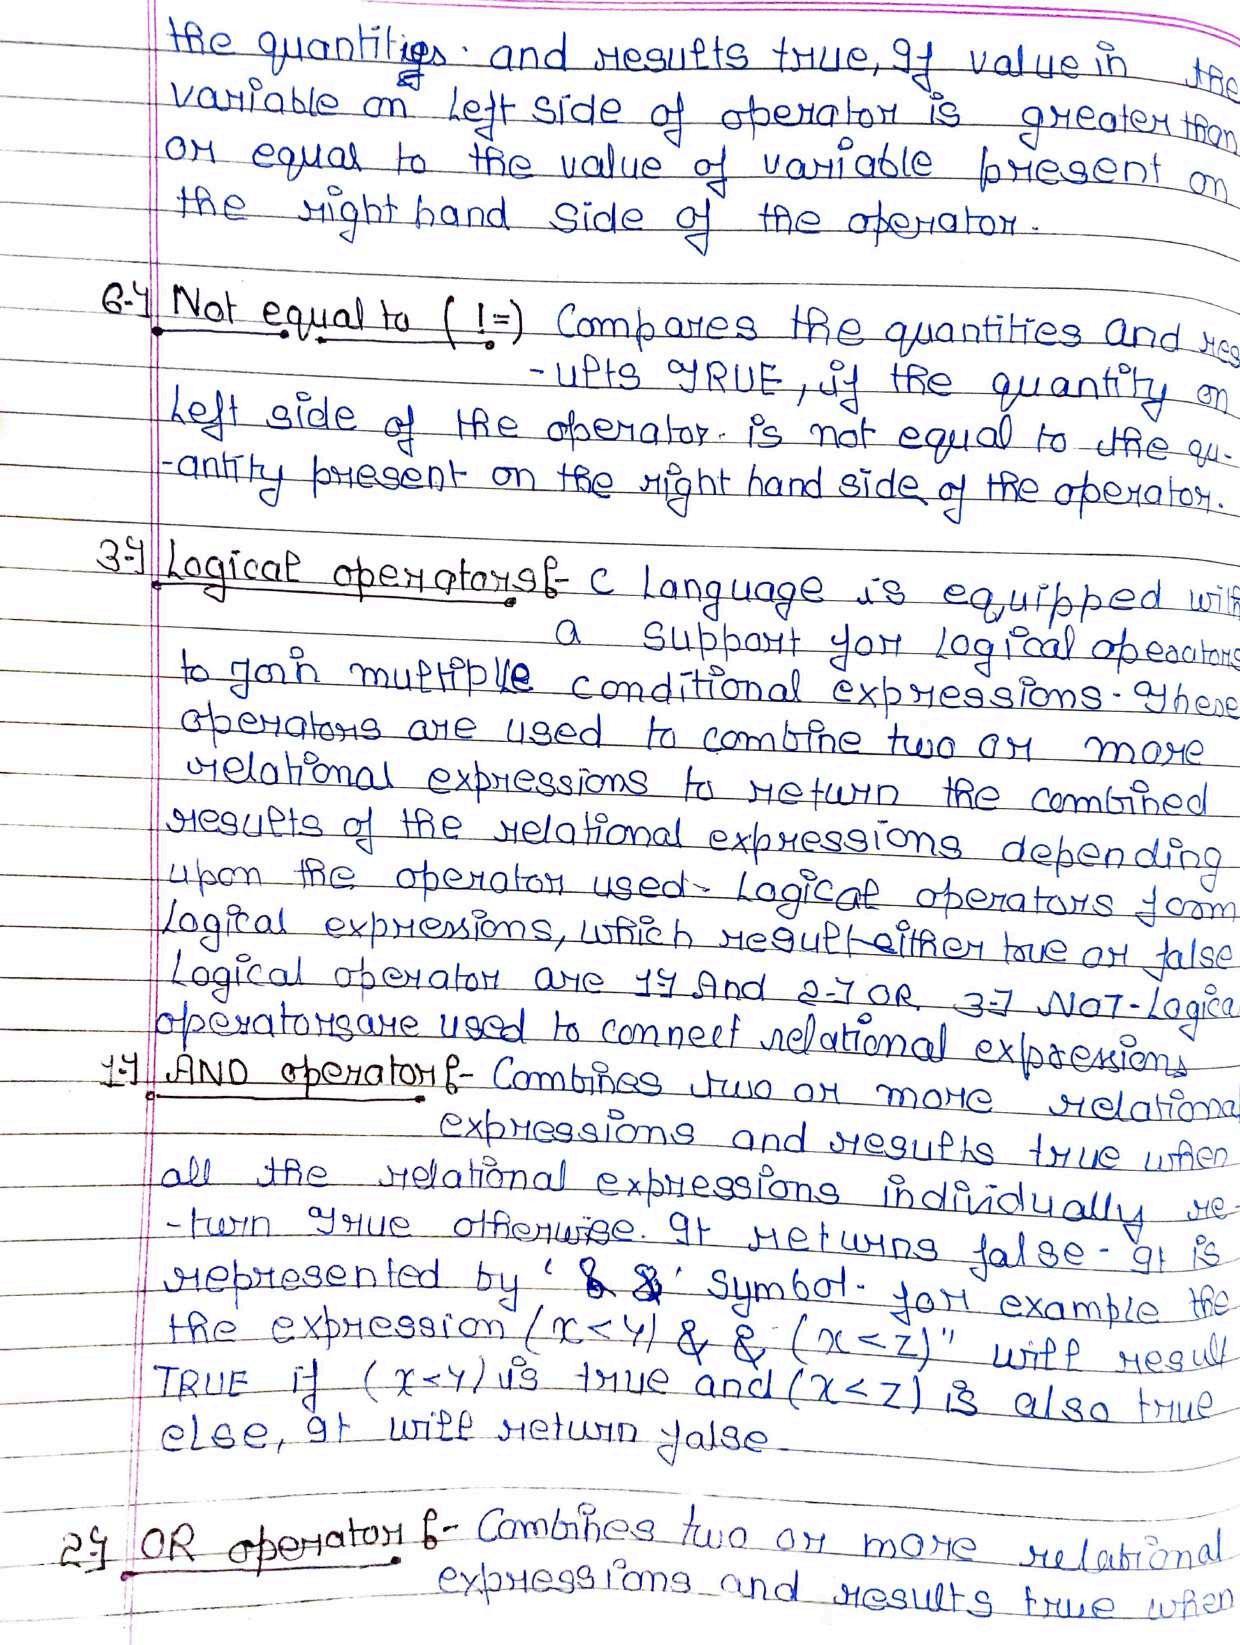 the quantities. and results true, If value in the
variable on left side of operator is greater than
or equal to the value of variable present on
the right hand side of the operator.
6-) Not equal to (!=) Compares the quantities and res
-ults TRUE, if the quantity on
left side of the operator. is not equal to the qu-
-antity present on the right hand side of the operator.
3-) Logical operators:- C language is equipped with
a support for logical opeaators
to join multiple conditional expressions. These
operators are used to combine two or more
relational expressions to return the combined
results of the relational expressions depending
upon the operator used- Logical operators form
logical expressions, which result either true or false
Logical operator are 1-) And 2-) OR 3-) NOT-Logica
operators are used to connect relational expressions
1-) AND operator:- Combines two or more relational
expressions and results true when
all the relational expressions individually re-
-turn True otherwise. It returns false- It is
represented by '&&' symbol. for example the
the expression (x<y) && (x<z)" will result
TRUE if (x<y) is true and (x<z) is also true
else, It will return false.
2-) OR operator:- Combines two or more relational
expressions and results true when